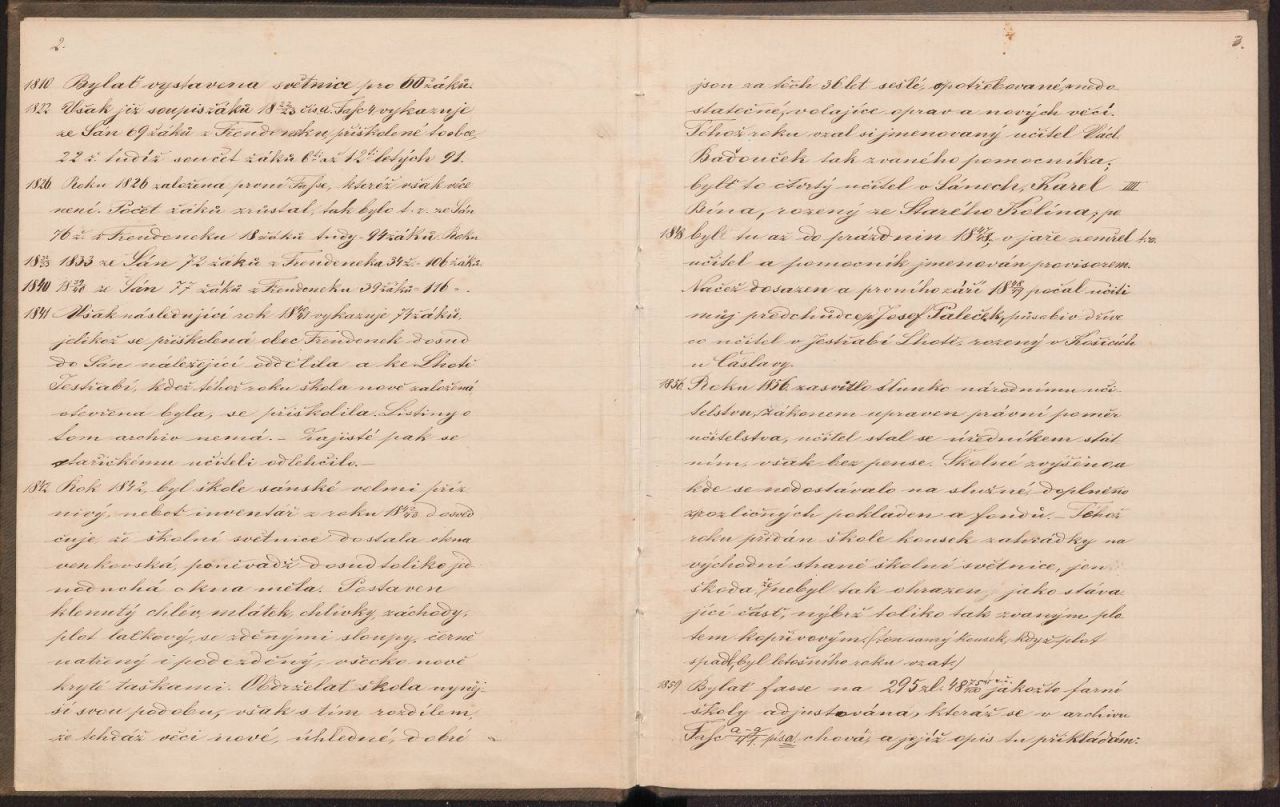 2.
1810 Bylať vystavena světnice pro 60 žáků.
1822 Však již soupis žáků 18 22/23 čísl. Fasc 4 vykazuje
ze Sán 69 žáků z Frendeneku, přiškolené to obce,
22 ž. tudíž součet žáků 6ti až 12ti letých 91.
1826 Roku 1826 založena první Fasse, kteréž však více
není. Počet žáků zrůstal, tak bylo t. r. ze Sán
76 ž. z Frendeneku 18 žáků tudy 94 žáků. Roku
1833 1833 ze Sán 72 žáků z Frendeneka 34 ž. - 106 žáků.
1840 18 39/40 ze Sán 77 žáků z Frendeneku 39 žáků - 116 -.
1841 Však následující rok 18 40/41 vykazuje 74 žáků,
jelikož se přiškolená obec Frendenek dosud
do Sán náležející oddělila a ke Lhotě
Jestřabí, kdež téhož roku škola nově založená
otevřena byla, se přiškolila. Listiny o
tom archiv nemá. – Zajisté pak se
stařičkému učiteli odlehčilo. –
1842 Rok 1842, byl škole sánské velmi příz-
nivý, neboť inventář z roku 18 42/43 dosvěd
čuje že školní světnice dostala okna
venkovská, poněvadž dosud toliko je
noduchá okna měla. Postaven
klenutý chlév, mlátek, chlívky, záchody,
plot laťkový, se zděnými sloupy, černě
natřený i podezděný, všecko nově
kryté taškami. Obdrželať škola nyněj-
ší svou podobu, však s tím rozdílem,
že tehdáž věci nové, úhledné, dobré
3.
jsou za těch 36 let sešlé, opotřebované, nedo
statečné, volající oprav a nových věcí.
Téhož roku vzal si jmenovaný učitel Václ.
Baďouček tak zvaného pomocníka,
bylť to čtvrtý učitel v Sánech, Karel IIII
Bína, rozený ze Starého Kolína, po
1848 bylť tu až do prázdnin 18 47/48, v jaře zemřel
učitel a pomocník jmenován provisorem.
Načež dosazen a prvního září 18 48/49 počal učiti
můj předchůdce, Josef Páleček, působiv dříve
co učitel v Jestřabí Lhotě, rozený v Košicích
u Čáslavy.
1856 Roku 1856 zasvitlo slunko národnímu uči-
telstvu, zákonem upraven právní poměr
učitelstva, učitel stal se úředníkem stát
ním, však bez pense. Školné zvýšeno, a
kde se nedostávalo na služné, doplněno
z rozličných pokladen a fondů. – Téhož
roku přidán škole kousek zahrádky na
východní straně školní světnice, jen
škoda že nebyl tak ohrazen, jako stáva
jící část, nýbrž toliko tak zvaným plo
tem kopřivovým. (ten samý kousek, když plot
spadl, byl letošního roku vzat.)
1859 Bylať fasse na 295 zl. 48 jakožto farní
školy adjustována, kteráž se v archivu
Fasc chová, a jejíž opis tu přikládám: